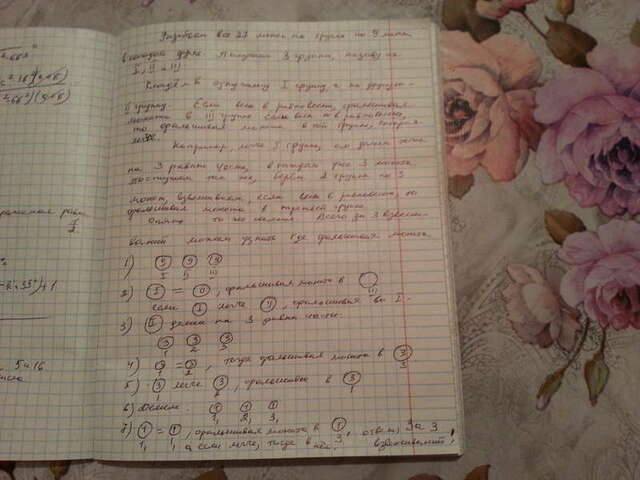 Разобьём все 27 монет на группы по 9 монет
в каждой группе. Получим 3 группы, назову их
I, II и III.
Кладём в одну чашу I группу, а на другую -
II группу. Если весы в равновесии, фальшивая
монета в III группе, если весы не в равновесии,
то фальшивая монета в той группе, которая
легче.
Например, легче I группа, её делим тоже
на 3 равные части, в каждой уже 3 монеты
поступаем так же, берём 2 группы по 3
монеты, взвешиваем, если весы в равновесии, то
фальшивая монета в третьей группе.
Опять то же самое. Всего за 3 взвеши-
вания можем узнать где фальшивая монета
1) 9 9 9
I II III
2) I = II, фальшивая монета в
III
если I легче II, фальшивая в I.
3) I делим на 3 равные части.
3 3 3
1 2 3
4) 3 = 3, тогда фальшивая монета в 3
1 2 3
5) 3 легче 3, фальшивая в 3
1 2 1
6) Делим: 1 1 1
1, 2, 3,
7) 1 = 1, фальшивая монета в 1, ответ: За 3
1, а если легче, тогда в ней. взвешиваний
5416